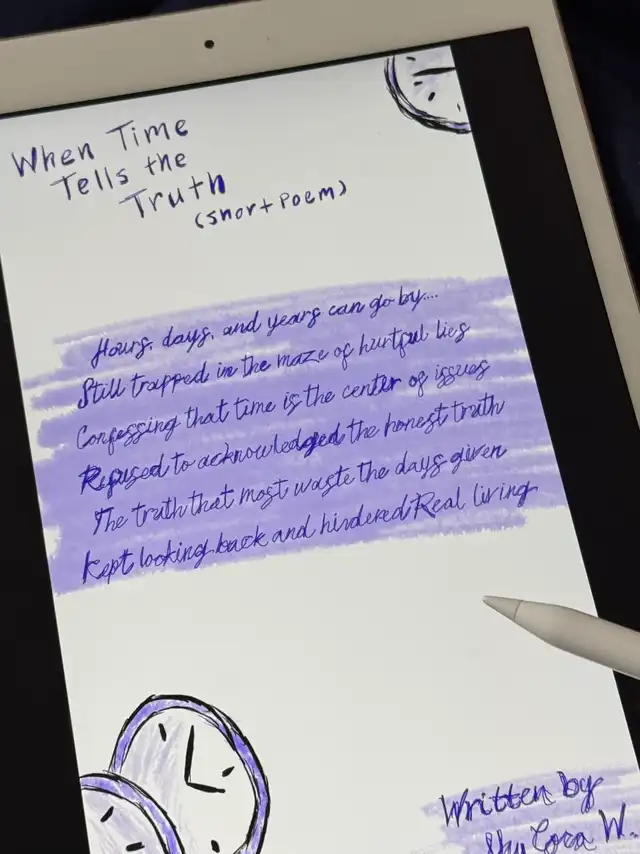 When Time
Tells the
Truth
(short Poem)
Hours, days, and years can go by....
Still trapped in the maze of hurtful lies
Confessing that time is the center of issues
Refused to acknowledged the honest truth
The truth that most waste the days given
Kept looking back and hindered Real living
Written by
Cora W.